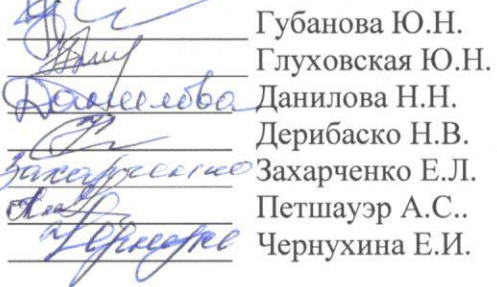 Губанова Ю.Н.
Глуховская Ю.Н.
Данилова Данилова Н.Н.
Дерибаско Н.В.
Захарченко Захарченко Е.Л.
Петшауэр А.С..
Чернухина Е.И.